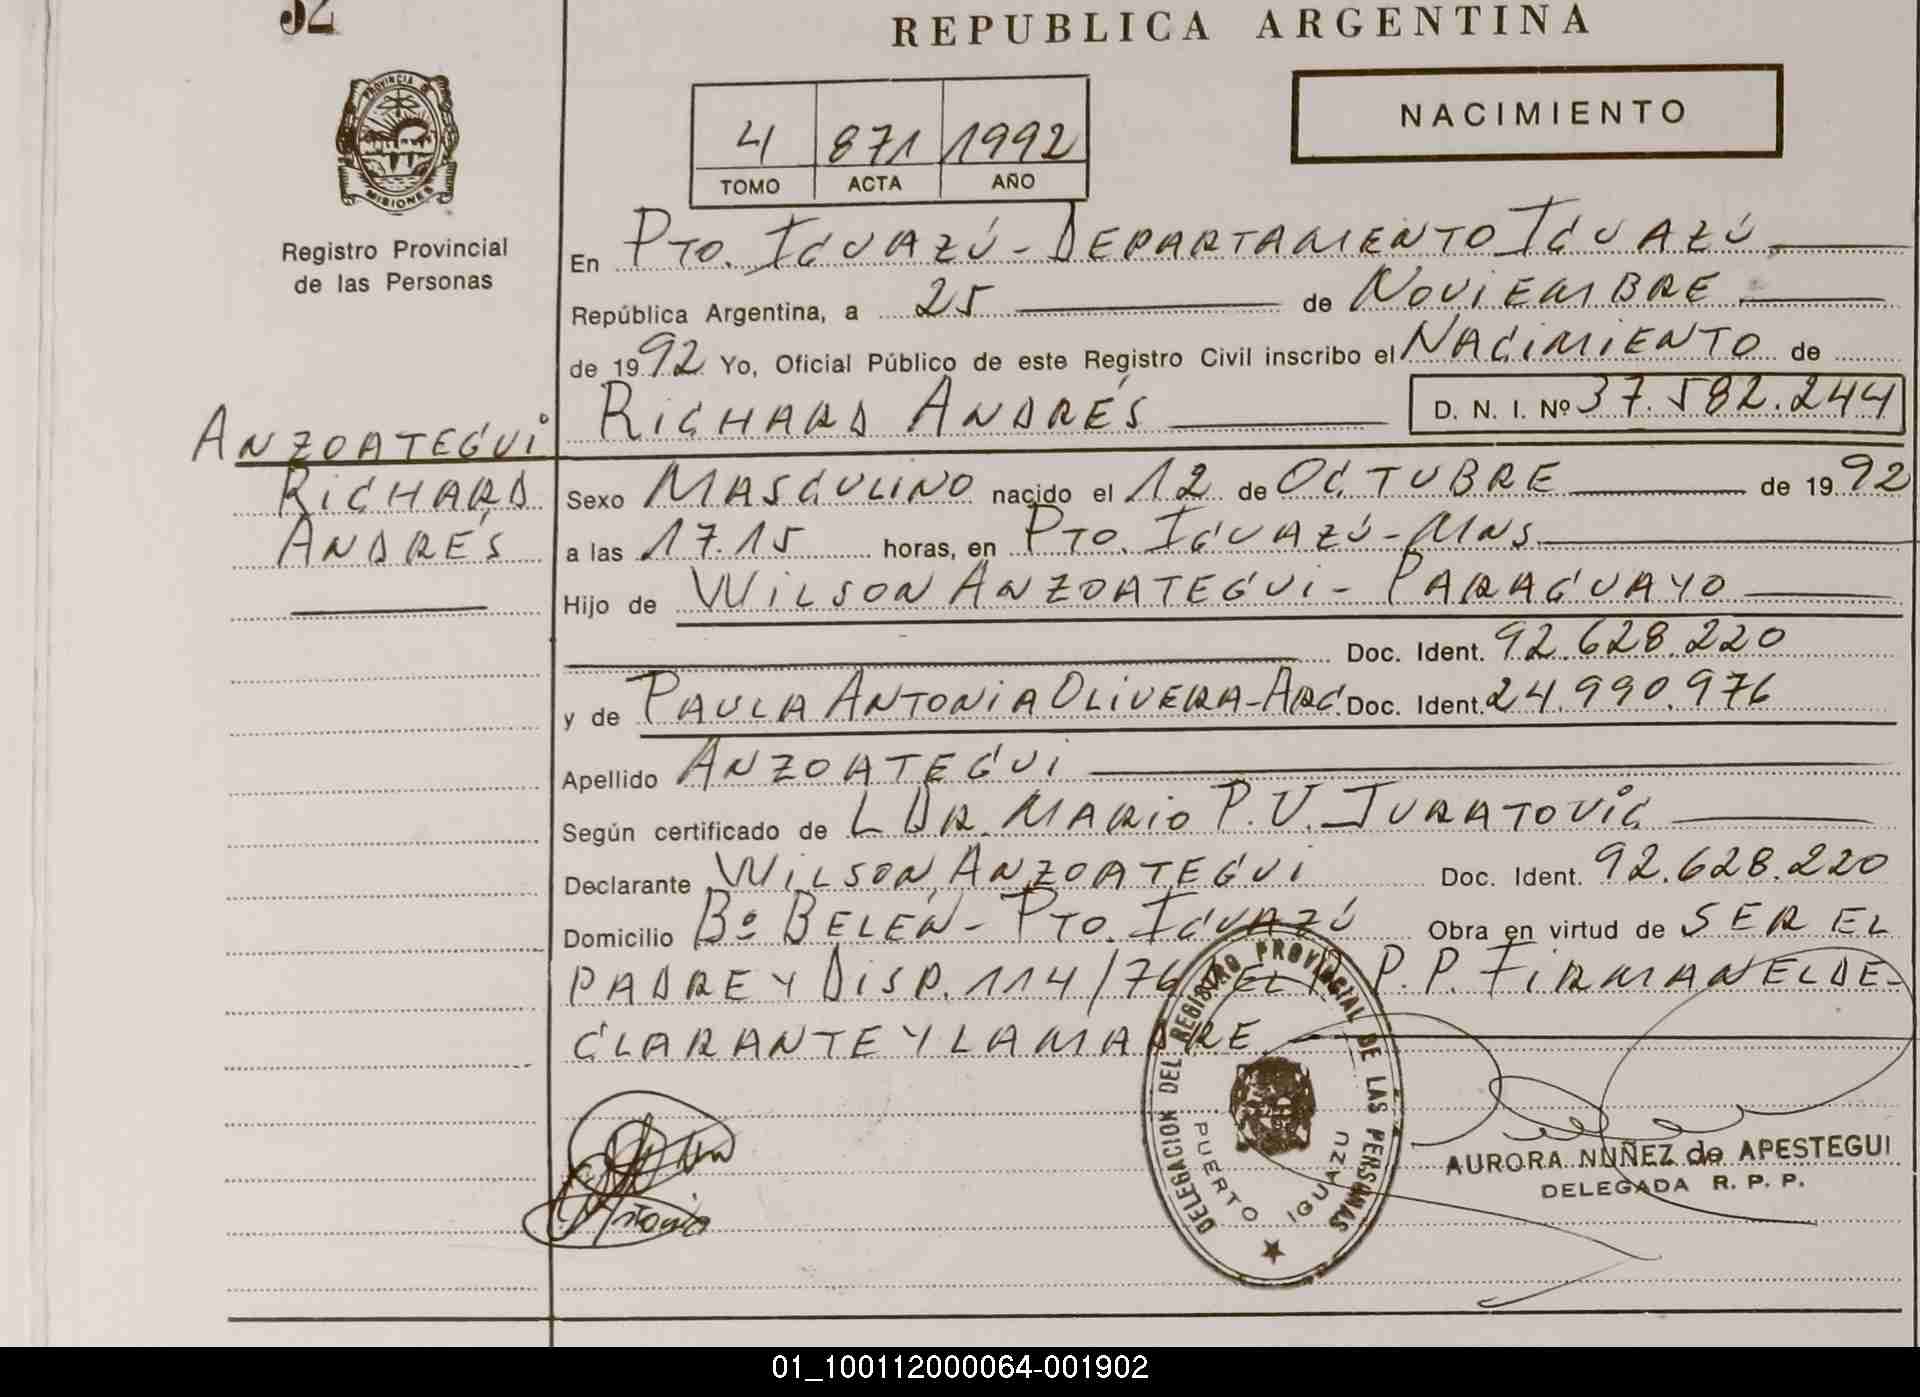 32
REPUBLICA ARGENTINA
PROVINCIA DE
MISIONES
Registro Provincial
de las Personas
4 871 1992
TOMO ACTA AÑO
NACIMIENTO
En PTO. IGUAZÚ - DEPARTAMENTO IGUAZÚ
República Argentina, a 25 de NOVIEMBRE
de 1992 Yo, Oficial Público de este Registro Civil inscribo el NACIMIENTO de
RICHARD ANDRÉS D. N. I. Nº 37.582.244
ANZOATEGUI
RICHARD
ANDRÉS
Sexo MASCULINO nacido el 12 de OCTUBRE de 1992
a las 17.15 horas, en PTO. IGUAZÚ - MNS.
Hijo de WILSON ANZOATEGUI - PARAGUAYO
Doc. Ident. 92.628.220
y de PAULA ANTONIA OLIVERA - ARG. Doc. Ident. 24.990.976
Apellido ANZOATEGUI
Según certificado de L DR. MARIO P.V. JURATOVIC
Declarante WILSON ANZOATEGUI Doc. Ident. 92.628.220
Domicilio Bº BELÉN - PTO. IGUAZÚ Obra en virtud de SER EL
PADRE Y DISP. 114/76 EL P.P. FIRMAN EL DE-
CLARANTE Y LA MADRE
DELEGACION DEL REGISTRO PROVINCIAL DE LAS PERSONAS
PUERTO IGUAZU
Antonia
AURORA NUÑEZ de APESTEGUI
DELEGADA R. P. P.
01_100112000064-001902